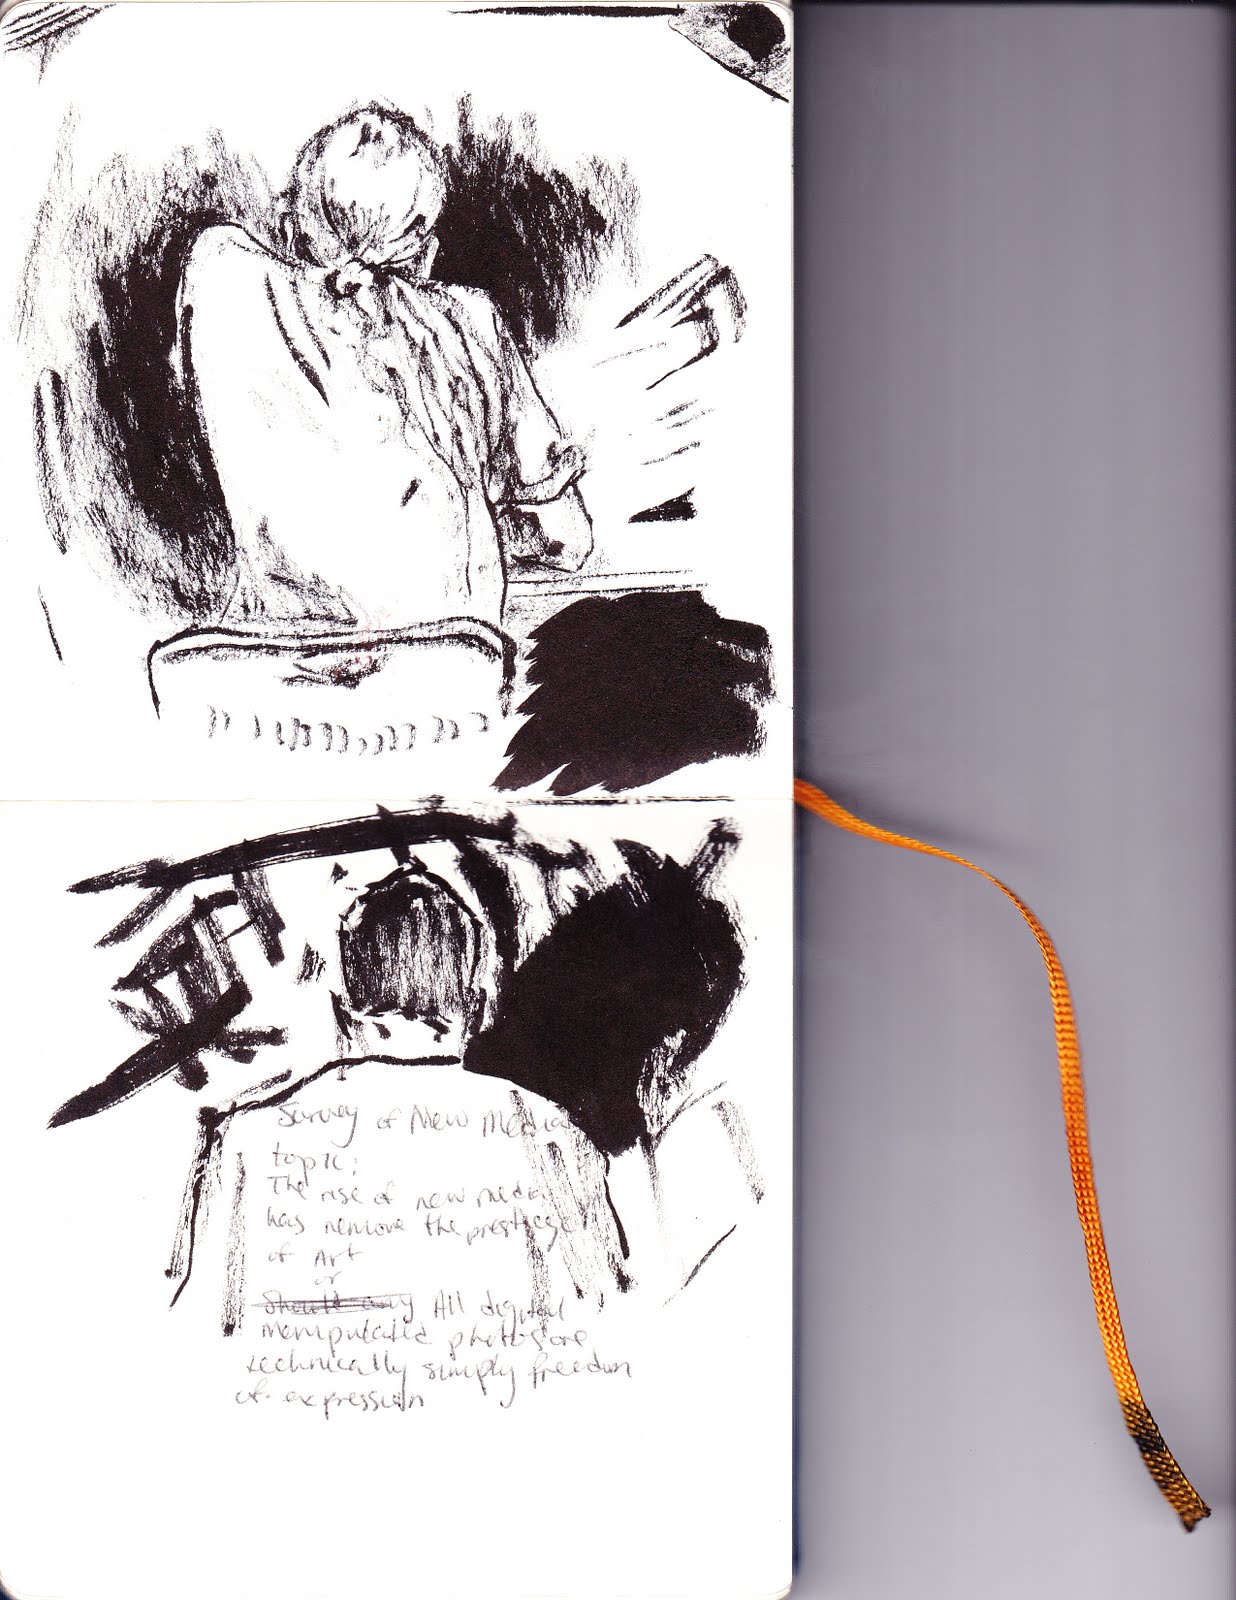 Survey of New Media
topic:
The rise of new media
has remove the prestiege
of Art
or
Should any All digital
manipulated photos are
technically simply freedom
of expression